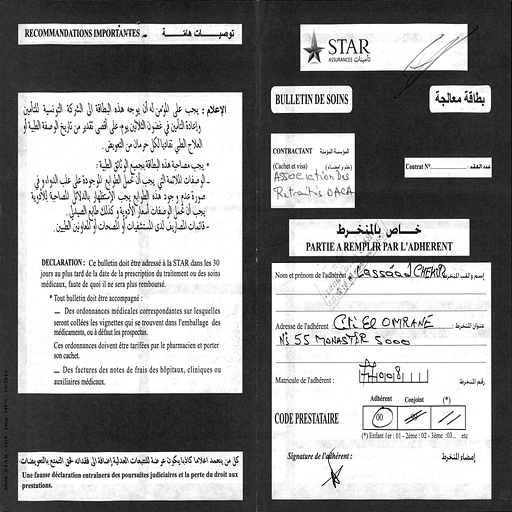 RECOMMANDATIONS IMPORTANTES توصيات هامة
الإعلام : يجب على المؤمن له أن يوجه هذه البطاقة الى الشركة التونسية للتأمين
وإعادة التأمين في غضون الثلاثين يوم، على أقصى تقدير من تاريخ الوصفة الطبية أو
العلاج الطبي تفاديا لكل حرمان من التعويض.
* يجب مصاحبة هذه البطاقة بجميع الوثائق الطبية :
ـ الوصفات الملائمة التي يجب أن تحمل الطوابع الموجودة على علب الدواء و في
صورة عدم وجود هذه الطوابع يجب الإستظهار بالدلائل المصاحبة للأدوية
يجب أن تحمل الوصفات أسعار الأدوية و كذلك طابع الصيدلي.
ـ قائمات المصاريف لدى المستشفيات أو المصحات أو المعاونين الطبيين.
DECLARATION : Ce bulletin doit être adressé à la STAR dans les 30
jours au plus tard de la date de la prescription du traitement ou des soins
médicaux, faute de quoi il ne sera plus remboursé.
* Tout bulletin doit être accompagné :
— Des ordonnances médicales correspondantes sur lesquelles
seront collées les vignettes qui se trouvent dans l'emballage des
médicaments, ou à défaut les prospectus.
Ces ordonnances doivent être tarifiées par le pharmacien et porter
son cachet.
— Des factures des notes de frais des hôpitaux, cliniques ou
auxiliaires médicaux.
كل من يتعمد إعلاما كاذبا يكون عرضة للتتبعات العدلية إضافة الى فقدانه حق التمتع بالتعويضات
Une fausse déclaration entraînera des poursuites judiciaires et la perte du droit aux
prestations.
STAR
ASSURANCES تأمينات
BULLETIN DE SOINS بطاقة معالجة
CONTRACTANT المؤسسة المؤمنة
(Cachet et visa) (ختم و إمضاء)
Association Des
Retraités OACA
Contrat N° عدد العقد
خاص بالمنخرط
PARTIE A REMPLIR PAR L'ADHERENT
Nom et prénom de l'adhérent : Lassâad CHEKIR إسم و لقب المنخرط
Adresse de l'adhérent : Cité El OMRANE عنوان المنخرط :
N: 55 MONASTIR 5000
Matricule de l'adhérent : رقم المنخرط
Adhérent Conjoint (*)
CODE PRESTATAIRE 00
(*) Enfant 1er : 01 - 2ème : 02 - 3ème : 03... etc
Signature de l'adhérent : إمضاء المنخرط